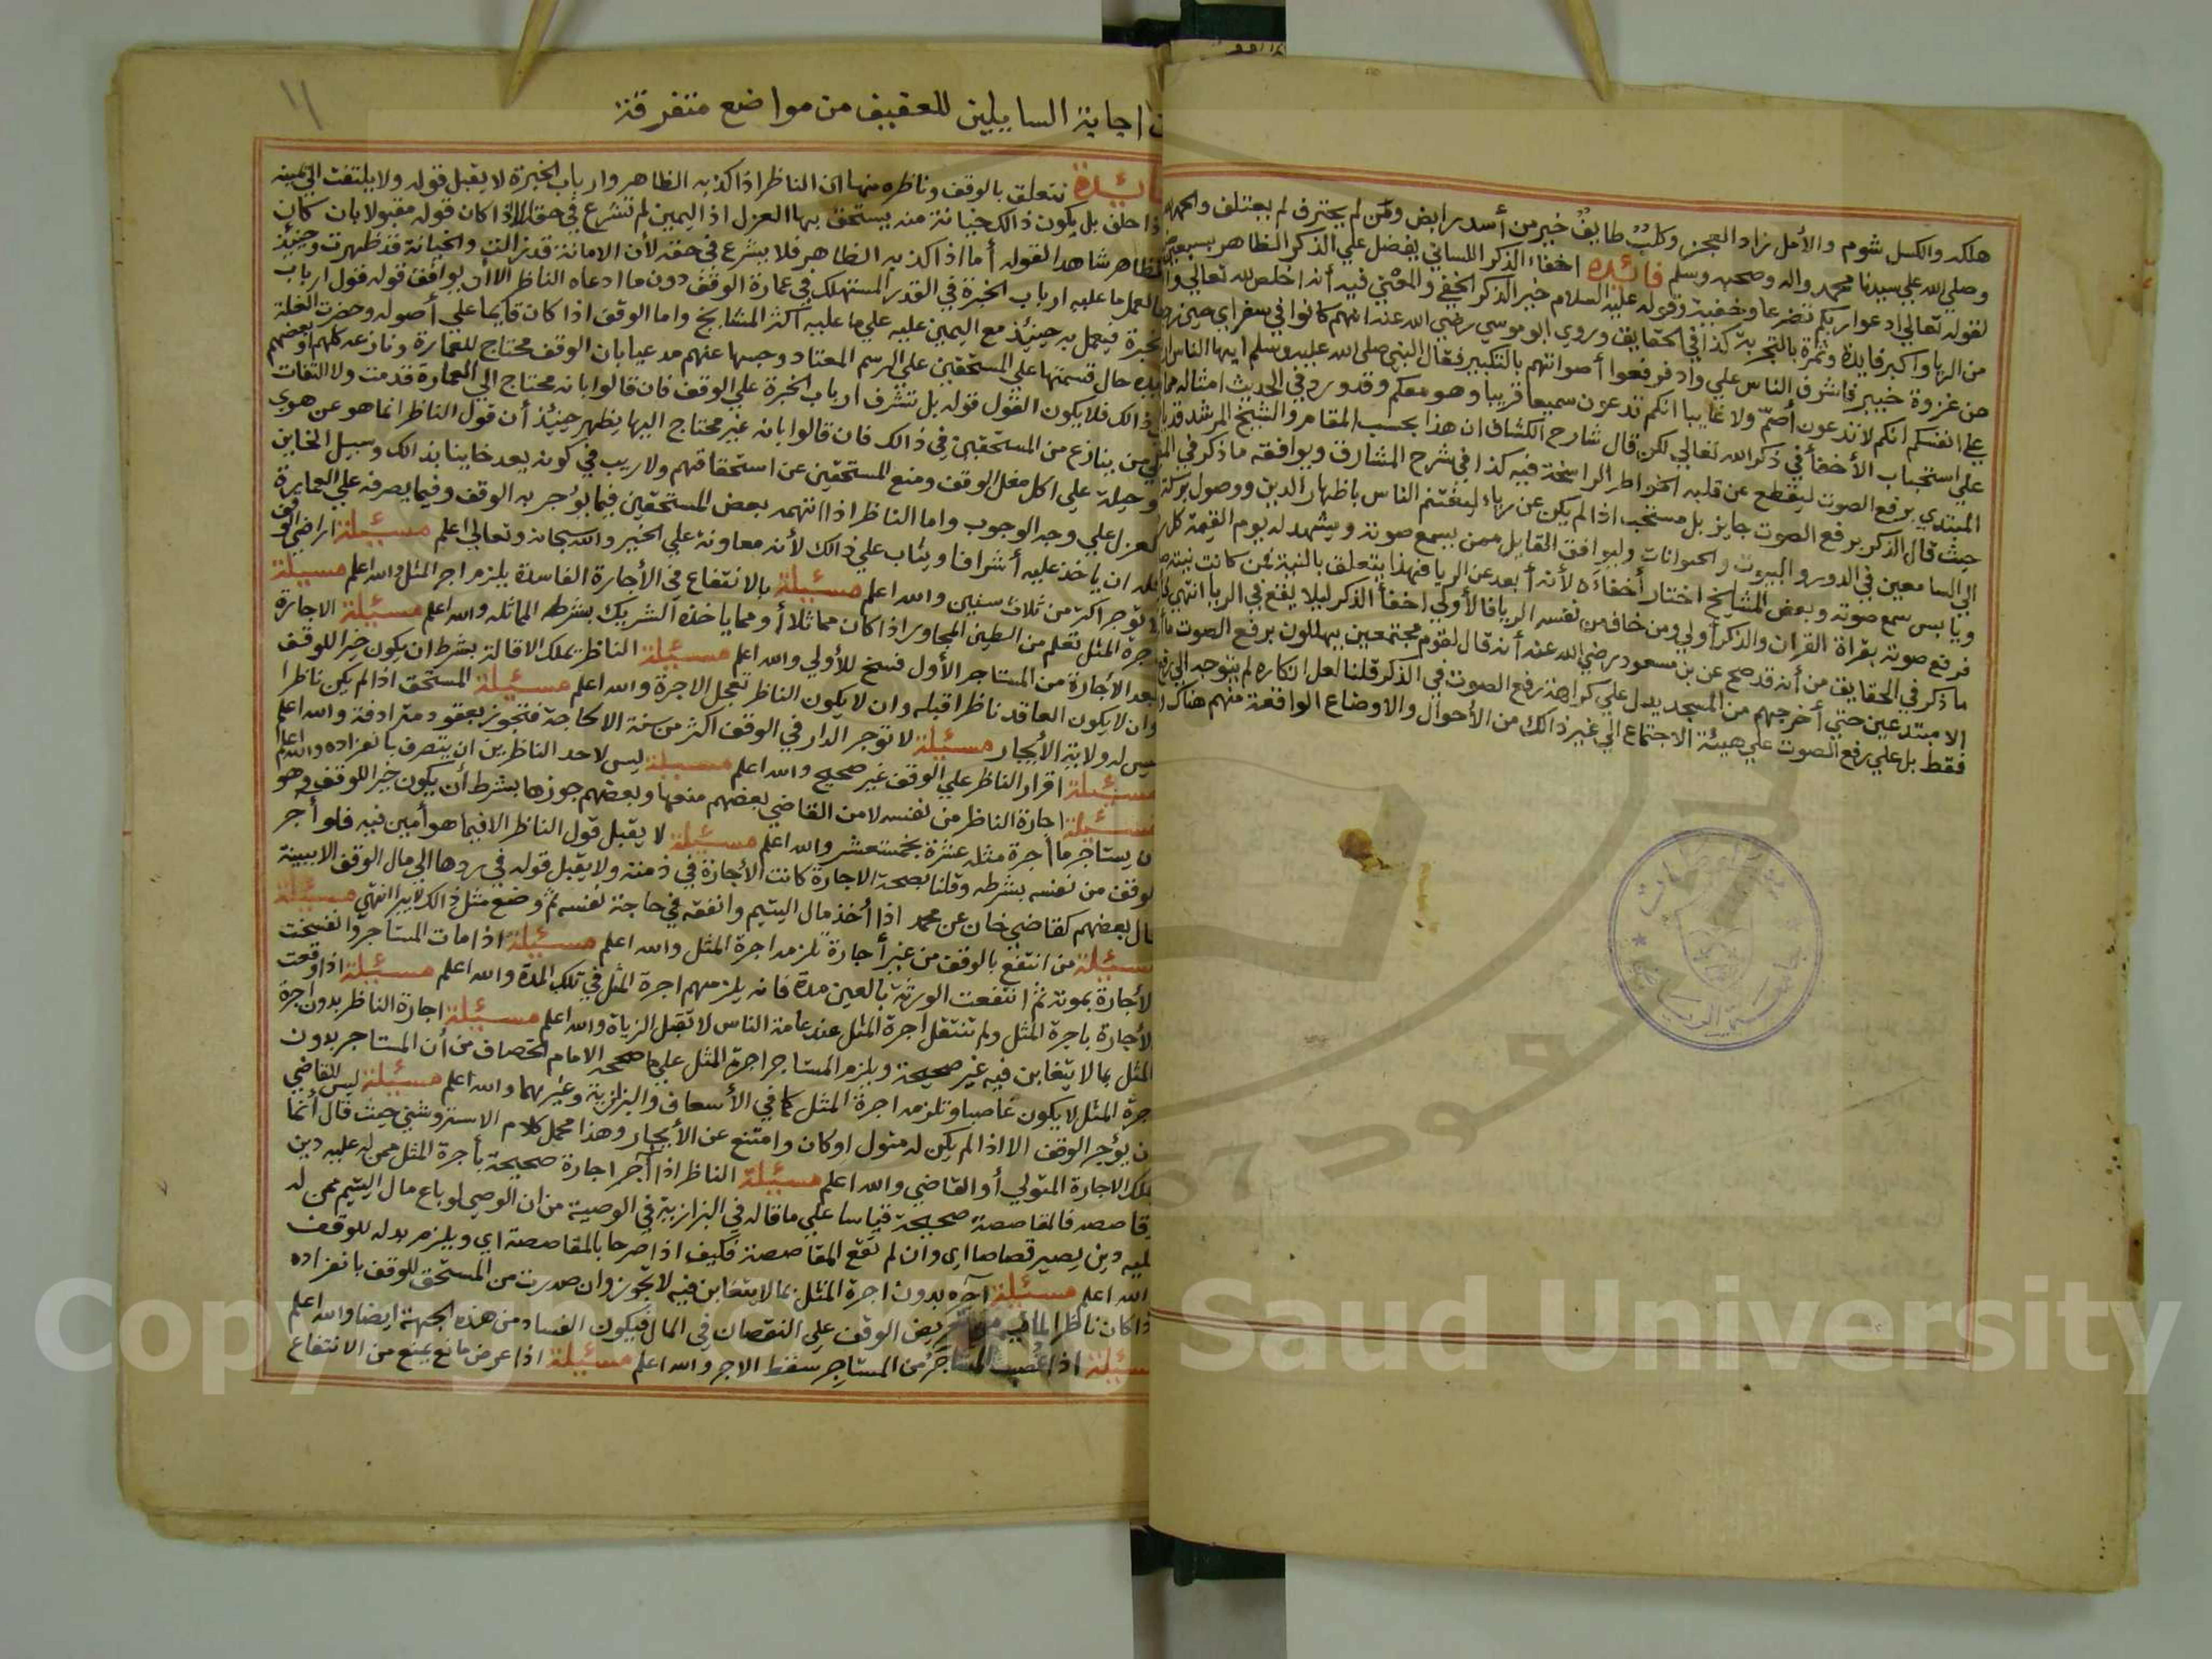 هلكه والكسل شوم والأمل زاد العجز وكلب طايف خير من أسد رابض ومن لم يحترف لم يعتلف والحمد لله
وصلي الله علي سيدنا محمد واله وصحبه وسلم فائدة اخفاء الذكر اللساني يفضل علي الذكر الظاهر بسبعين
لقوله تعالي ادعوا ربكم تضرعا وخفية وقوله عليه السلام خير الذكر الخفي والمعني فيه أنه اخلص لله تعالي
من الريا واكبر فايدة وثمرة بالتجربة كذا في الحقايق وروي ابو موسي رضي الله عنه انهم كانوا في سفر اي حين
من غزوة خيبر فاشرف الناس علي واد فرفعوا أصواتهم بالتكبير فقال النبي صلى الله عليه وسلم ايها الناس
علي انفسكم انكم لا تدعون أصم ولا غايبا انكم تدعون سميعا قريبا وهو معكم وقد ورد في الحديث امثاله
علي استحباب الأخفا في ذكر الله تعالي لكن قال شارح الكشاف ان هذا بحسب المقام والشيخ المرشد قد
المبتدي برفع الصوت ليقطع عن قلبه الخواطر الراسخة فيه كذا في شرح المشارق ويوافقه ما ذكر في
حيث قال الذكر برفع الصوت جايز بل مستحب اذا لم يكن عن رياء ليغتنم الناس باظهار الدين ووصول بركة
الي السامعين في الدور والبيوت والحيوانات وليوافق القايل ممن يسمع صوته ويشهد له يوم القيمة كل
ويابس سمع صوته وبعض المشايخ اختار أخفاءه لأنه أبعد عن الريا فهذا يتعلق بالنية فمن كانت نيته
فرفع صوته بقراة القران والذكر أولي ومن خاف من نفسه الريا فالأولي اخفأ الذكر ليلا يقع في الريا انتهي
ما ذكر في الحقايق من أنه قد صح عن بن مسعود رضي الله عنه أنه قال لقوم مجتمعين يهللون برفع الصوت ما
الا مبتدعين حتي أخرجهم من المسجد يدل علي كراهة رفع الصوت في الذكر قلنا لعل انكاره لم يتوجه الي رفع
فقط بل علي رفع الصوت علي هيئة الاجتماع الي غير ذالك من الأحوال والاوضاع الواقعة منهم هناك
اجابة السايلين للعفيف من مواضع متفرقة
تتعلق بالوقف وناظره منها ان الناظر اذا كذبه الظاهر وارباب الخبرة لا يقبل قوله ولا يلتفت الي يمينه
حلف بل يكون ذالك خيانة منه يستحق بها العزل اذ اليمين لم تشرع في حقه الا اذا كان قوله مقبولا بان كان
شاهدا لقوله أما اذا كذبه الظاهر فلا يشرع في حقه لأن الامانة قد زالت والخيانة قد ظهرت وحينئذ
العمل ما عليه ارباب الخبرة في القدر المستهلك في عمارة الوقف دون ما ادعاه الناظر الا أن يوافق قوله قول ارباب
فيعمل به حينئذ مع اليمين عليه علي ما عليه اكثر المشايخ واما الوقف اذا كان قايما علي أصوله وحضرت الغلة
حال قسمتها علي المستحقين علي الرسم المعتاد وحبسها عنهم مدعيا بان الوقف محتاج للعمارة ونازعه كلهم أو بعضهم
ذالك فلا يكون القول قوله بل تشرف ارباب الخبرة علي الوقف فان قالوا بانه محتاج الي العمارة قدمت ولا التفات
من ينازع من المستحقين في ذالك فان قالوا بانه غير محتاج اليها يظهر حينئذ أن قول الناظر انما هو عن هوي
وحيلة علي اكل مغل الوقف ومنع المستحقين عن استحقاقهم ولا ريب في كونه يعد خاينا بذالك وسبيل الخاين
العزل علي وجه الوجوب واما الناظر اذا اتهمه بعض المستحقين فيما يؤجر به الوقف وفيما يصرفه علي العمارة
ان ياخذ عليه أشرافا ويثاب علي ذالك لأنه معاونة علي الخير والله سبحانه وتعالي اعلم مسئلة اراضي الوقف
توجر اكثر من ثلاث سنين والله اعلم مسئلة بالانتفاع في الأجارة الفاسدة يلزم اجر المثل والله اعلم مسئلة
اجرة المثل تعلم من الطين المجاور اذا كان مماثلا أو مما ياخذه الشريك بشرط المماثله والله اعلم مسئلة الاجارة
بعد الأجارة من المستاجر الأول فسخ للأولي والله اعلم مسئلة الناظر يملك الاقالة بشرط ان يكون خيرا للوقف
وان لا يكون العاقد ناظرا قبله وان لا يكون الناظر تعجل الاجرة والله اعلم مسئلة المستحق اذا لم يكن ناظرا
ليس له ولاية الأيجار مسئلة لا توجر الدار في الوقف اكثر من سنة الا لحاجة فتجوز بعقود مترادفة والله اعلم
مسئلة اقرار الناظر علي الوقف غير صحيح والله اعلم مسئلة ليس لاحد الناظرين ان يتصرف بانفراده والله اعلم
مسئلة اجارة الناظر من نفسه لا من القاضي بعضهم منعها وبعضهم جوزها بشرط أن يكون خيرا للوقف وهو
يستاجر ما أجرة مثله عشرة بخمسة عشر والله اعلم مسئلة لا يقبل قول الناظر الا فيما هو أمين فيه فلو أجر
الوقف من نفسه بشرطه وقلنا بصحة الاجارة كانت الأجارة في ذمته ولا يقبل قوله في ردها الي مال الوقف الا ببينة
قال بعضهم كقاضي خان عن محمد اذا أخذ مال اليتيم وانفقه في حاجة نفسه ثم وضع مثل ذالك لا يبرا انتهي مسئلة
مسئلة من انتفع بالوقف من غير أجارة تلزمه اجرة المثل والله اعلم مسئلة اذا مات المستاجر وانفسخت
الأجارة بموته ثم انتفعت الورثة بالعين مدة فانه يلزمهم اجرة المثل في تلك المدة والله اعلم مسئلة اذا وقعت
الأجارة باجرة المثل ولم تنتقل اجرة المثل عند عامة الناس لا تقبل الزيادة والله اعلم مسئلة اجارة الناظر بدون اجرة
المثل بما لا يتغابن فيه غير صحيحة ويلزم المستاجر اجرة المثل علي ما صححه الامام الخصاف من أن المستاجر بدون
اجرة المثل لا يكون غاصبا وتلزمه اجرة المثل كما في الأسعاف والبزازية وغيرهما والله اعلم مسئلة ليس للقاضي
ان يؤجر الوقف الا اذا لم يكن له متول او كان وامتنع عن الأيجار وهذا محمل كلام الاستروشني حيث قال أنما
يملك الاجارة المتولي أو القاضي والله اعلم مسئلة الناظر اذا آجر اجارة صحيحة بأجرة المثل ممن له عليه دين
فالمقاصصة صحيحة قياسا علي ما قاله في البزازية في الوصية من ان الوصي لو باع مال اليتيم ممن له
عليه دين يصير قصاصا اي وان لم تقع المقاصصة فكيف اذا صرحا بالمقاصصة اي ويلزم بدله للوقف
الله اعلم مسئلة آجره بدون اجرة المثل بما لا يتغابن فيه لا تجوز وان صدرت من المستحق للوقف بانفراده
اذا كان ناظرا الوقف علي النقصان في المال فيكون الفساد من هذه الجهة ايضا والله اعلم
مسئلة اذا غصب المستاجر من المستاجر سقط الاجر والله اعلم مسئلة اذا عرض مانع يمنع من الانتفاع
Copyright © King Saud University